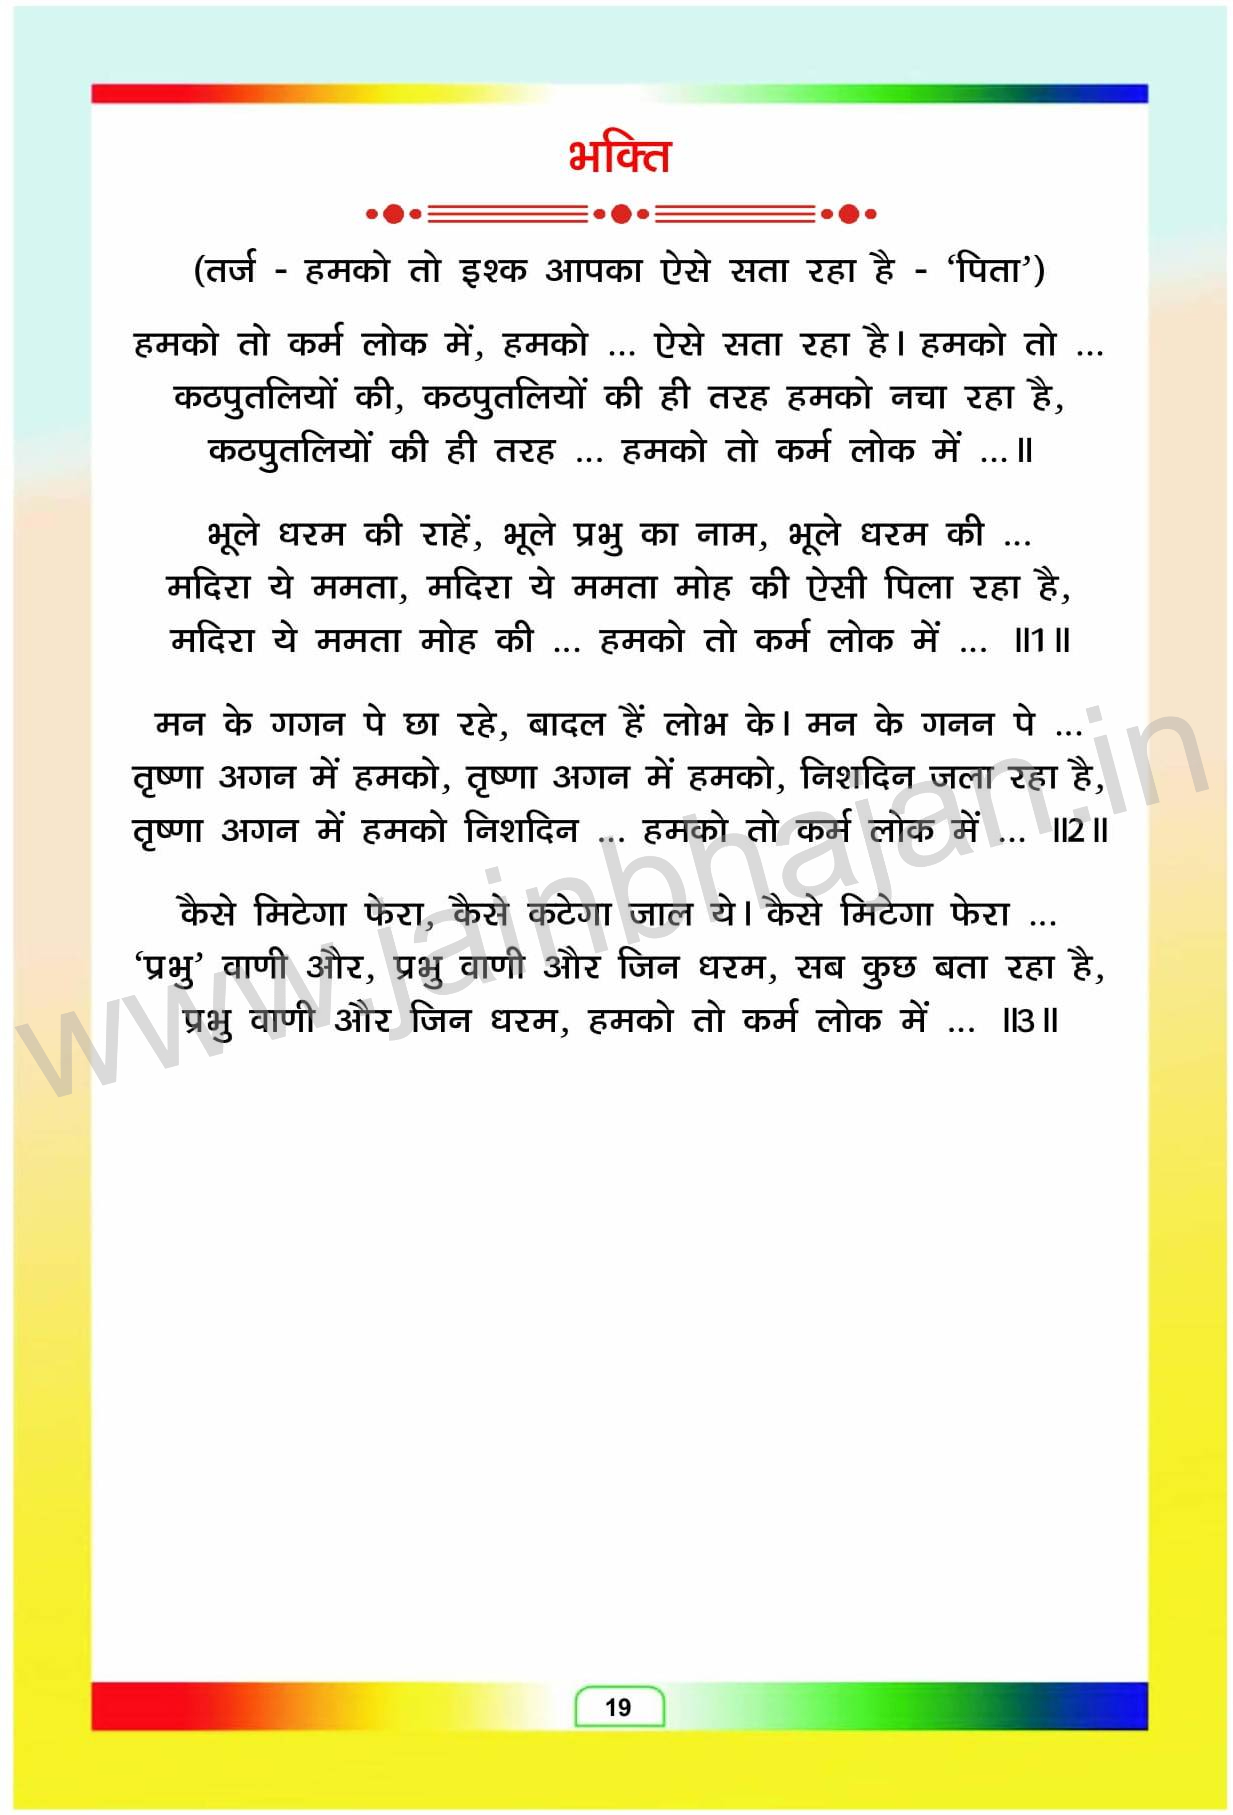 भक्ति
(तर्ज - हमको तो इश्क आपका ऐसे सता रहा है - ‘पिता’)
हमको तो कर्म लोक में, हमको ... ऐसे सता रहा है। हमको तो ...
कठपुतलियों की, कठपुतलियों की ही तरह हमको नचा रहा है,
कठपुतलियों की ही तरह ... हमको तो कर्म लोक में ...॥
भूले धरम की राहें, भूले प्रभु का नाम, भूले धरम की ...
मदिरा ये ममता, मदिरा ये ममता मोह की ऐसी पिला रहा है,
मदिरा ये ममता मोह की ... हमको तो कर्म लोक में ... ॥1॥
मन के गगन पे छा रहे, बादल हैं लोभ के। मन के गनन पे ...
तृष्णा अगन में हमको, तृष्णा अगन में हमको, निशदिन जला रहा है,
तृष्णा अगन में हमको निशदिन ... हमको तो कर्म लोक में ... ॥2॥
कैसे मिटेगा फेरा, कैसे कटेगा जाल ये। कैसे मिटेगा फेरा ...
‘प्रभु’ वाणी और, प्रभु वाणी और जिन धरम, सब कुछ बता रहा है,
प्रभु वाणी और जिन धरम, हमको तो कर्म लोक में ... ॥3॥
www.jainbhajan.in
19